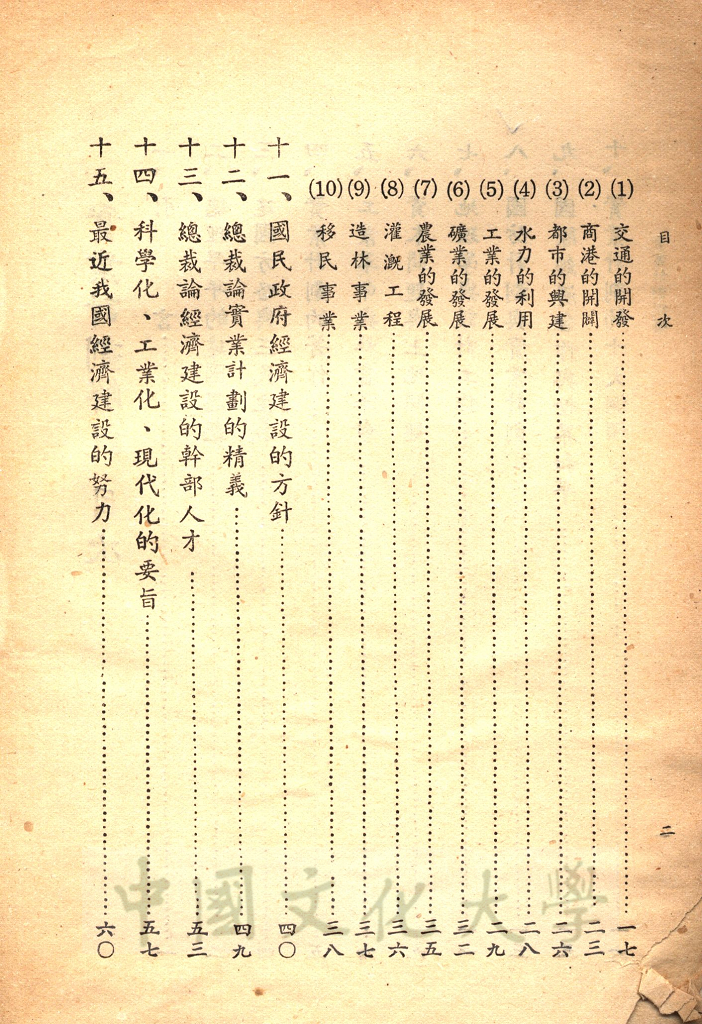 目次
二
(1)交通的開發……一七
(2)商港的開闢……二三
(3)都市的興建……二六
(4)水力的利用……二八
(5)工業的發展……二九
(6)礦業的發展……三二
(7)農業的發展……三五
(8)灌溉工程……三六
(9)造林事業……三七
(10)移民事業……三八
十一、國民政府經濟建設的方針……四〇
十二、總裁論實業計劃的精義……四九
十三、總裁論經濟建設的幹部人才……五三
十四、科學化、工業化、現代化的要旨……五七
十五、最近我國經濟建設的努力……六〇
中國文化大學